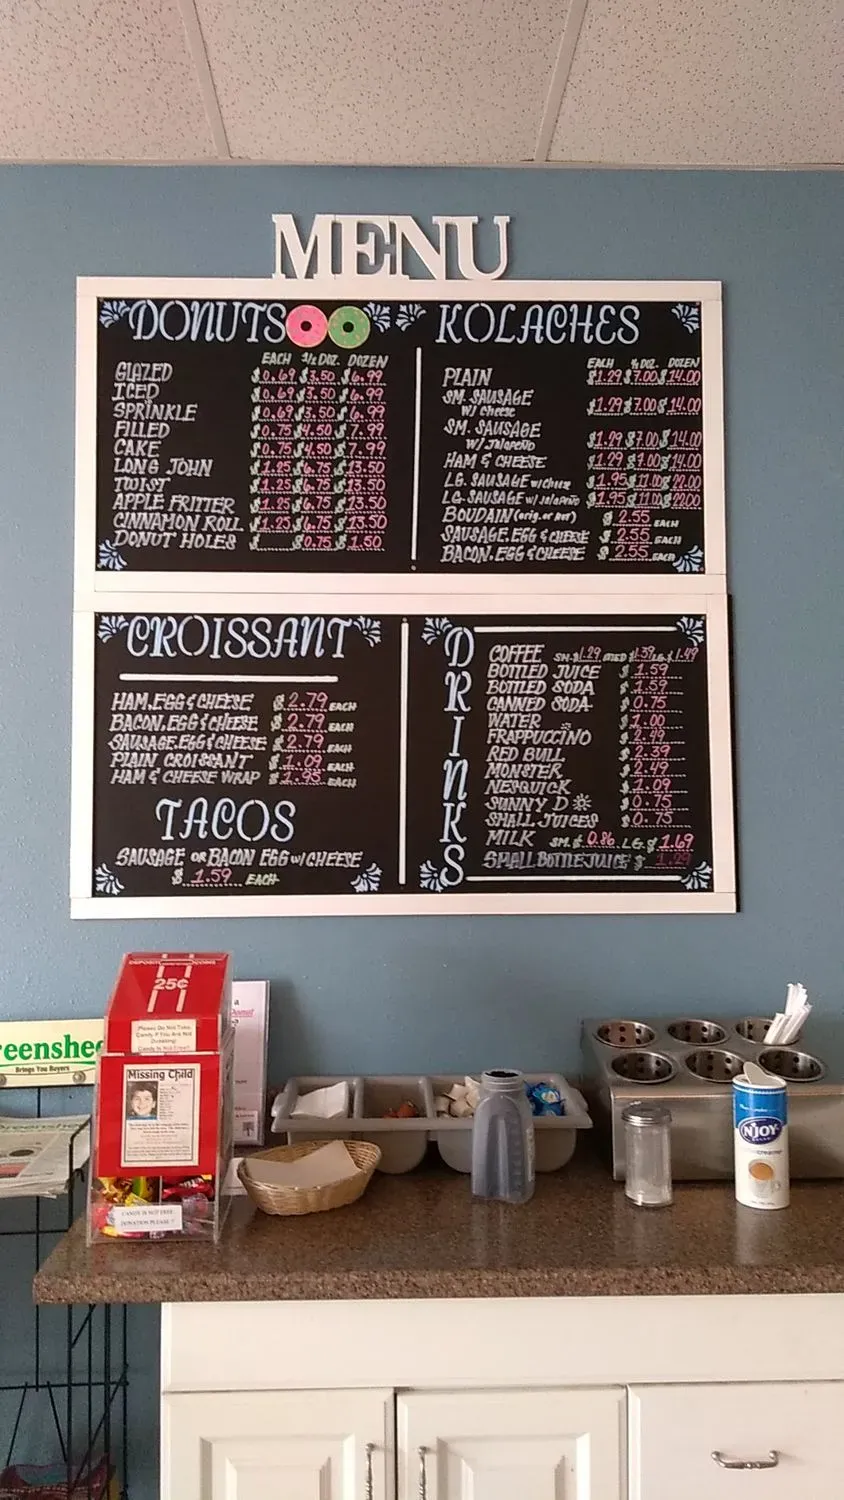 MENU
DONUTS
EACH 1/2 DOZ. DOZEN
GLAZED $0.69 $3.50 $6.99
ICED $0.69 $3.50 $6.99
SPRINKLE $0.69 $3.50 $6.99
FILLED $0.75 $4.50 $7.99
CAKE $0.75 $4.50 $7.99
LONG JOHN $1.25 $6.75 $13.50
TWIST $1.25 $6.75 $13.50
APPLE FRITTER $1.25 $6.75 $13.50
CINNAMON ROLL $1.25 $6.75 $13.50
DONUT HOLES $ $0.75 $1.50
KOLACHES
EACH ½ DOZ. DOZEN
PLAIN $1.29 $7.00 $14.00
SM. SAUSAGE
w/ Cheese $1.29 $7.00 $14.00
SM. SAUSAGE
w/ Jalapeño $1.29 $7.00 $14.00
HAM & CHEESE $1.29 $7.00 $14.00
LG. SAUSAGE w/ Cheese $1.95 $11.00 $22.00
LG. SAUSAGE w/ Jalapeño $1.95 $11.00 $22.00
BOUDAIN (orig. or hot) $2.55 EACH
SAUSAGE, EGG & CHEESE $2.55 EACH
BACON, EGG & CHEESE $2.55 EACH
CROISSANT
HAM, EGG & CHEESE $2.79 EACH
BACON, EGG & CHEESE $2.79 EACH
SAUSAGE, EGG & CHEESE $2.79 EACH
PLAIN CROISSANT $1.09 EACH
HAM & CHEESE WRAP $1.95 EACH
TACOS
SAUSAGE OR BACON EGG w/ CHEESE
$1.59 EACH
DRINKS
COFFEE SM. $1.29 MED $1.39 LG. $1.49
BOTTLED JUICE $1.59
BOTTLED SODA $1.59
CANNED SODA $0.75
WATER $1.00
FRAPPUCCINO $2.49
RED BULL $2.39
MONSTER $2.49
NESQUICK $1.09
SUNNY D $0.75
SMALL JUICES $0.75
MILK SM. $0.86 LG. $1.69
SMALL BOTTLE JUICE $1.29
25¢
Please Do Not Take
Candy If You Are Not
Donating!
Candy Is Not Free!
Missing Child
CANDY IS NOT FREE
DONATION PLEASE
reenshee
Brings You Buyers
a
Donut
N'JOY
creamer